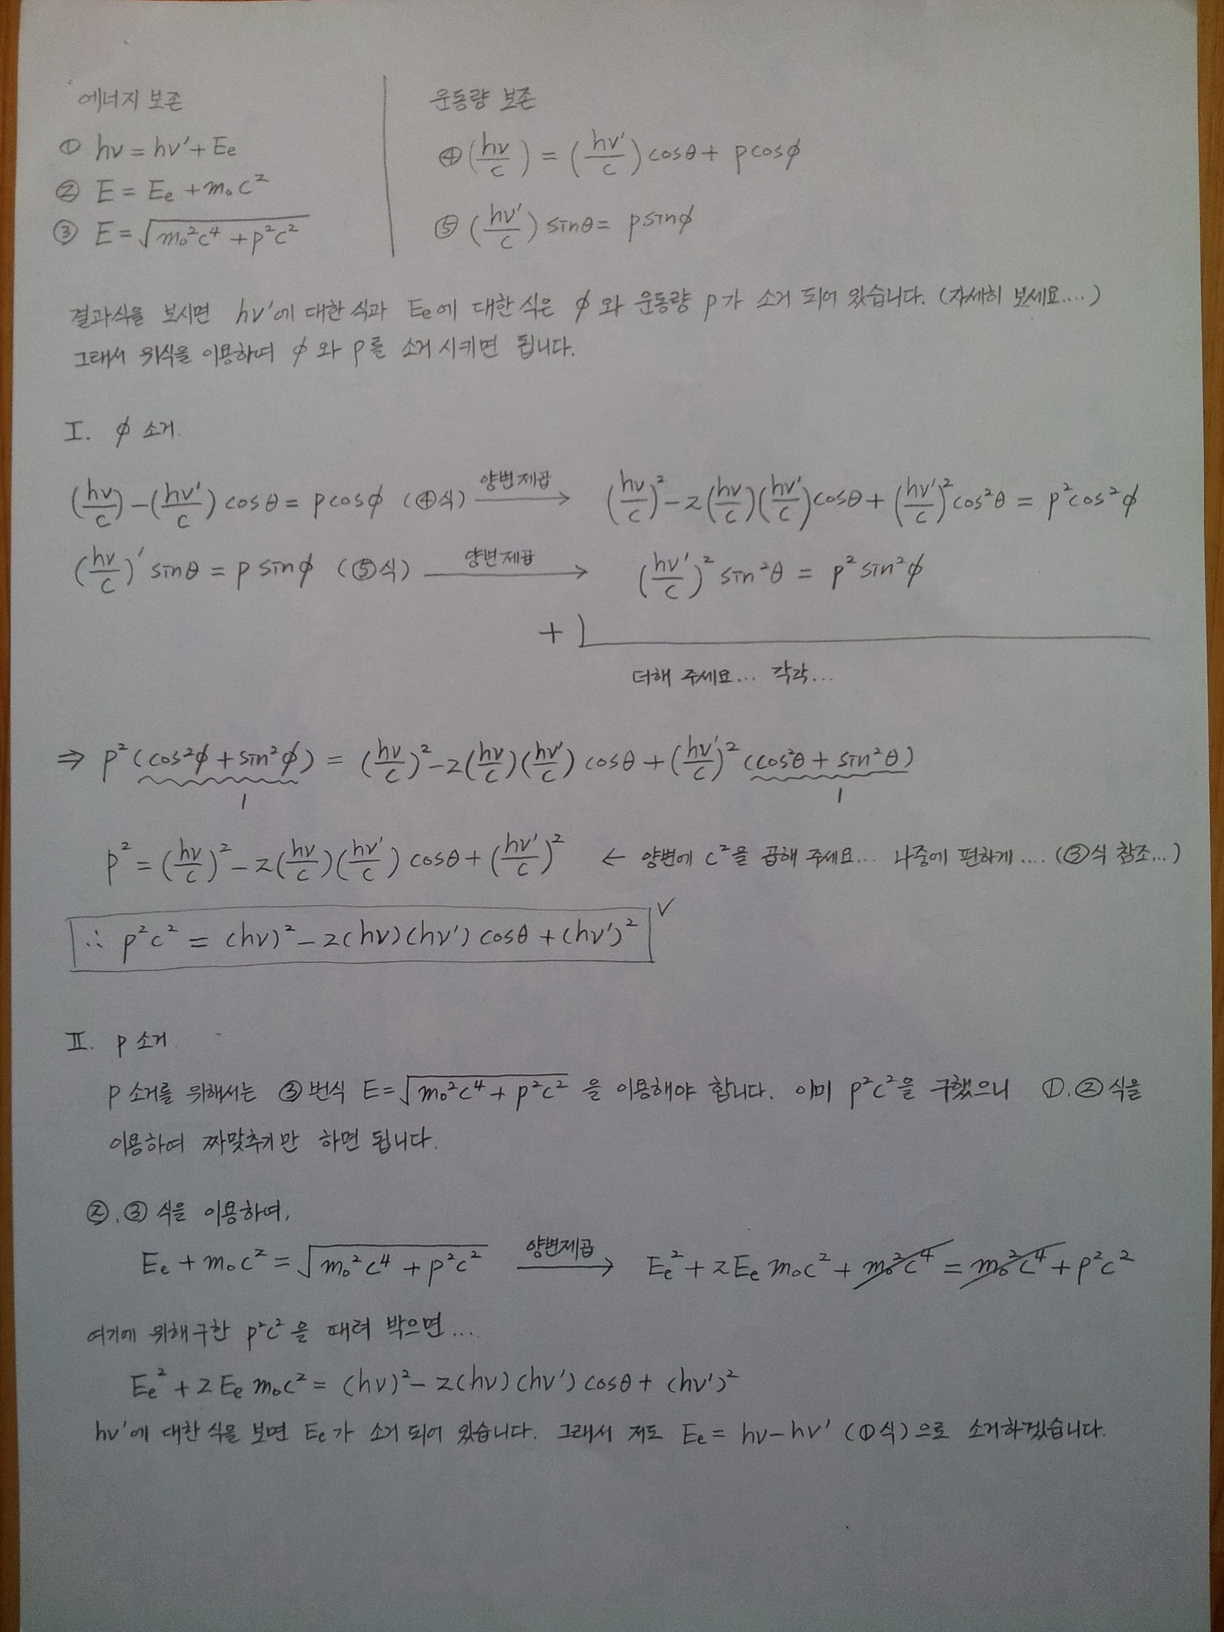 에너지 보존
① hν = hν' + Ee
② E = Ee + m₀c²
③ E = √(m₀²c⁴ + p²c²)
운동량 보존
④ (hν/c) = (hν'/c) cosθ + p cosϕ
⑤ (hν'/c) sinθ = p sinϕ
결과식을 보시면 hν'에 대한 식과 Ee에 대한 식은 ϕ와 운동량 p가 소거 되어 있습니다. (자세히 보세요....)
그래서 위식을 이용하여 ϕ와 p를 소거 시키면 됩니다.
Ⅰ. ϕ 소거.
(hν/c) - (hν'/c) cosθ = p cosϕ (④식) 양변제곱 → (hν/c)² - 2(hν/c)(hν'/c) cosθ + (hν'/c)² cos²θ = p² cos²ϕ
(hν/c)' sinθ = p sinϕ (⑤식) 양변제곱 → (hν'/c)² sin²θ = p² sin²ϕ
+)
더해 주세요... 각각...
⇒ p² (cos²ϕ + sin²ϕ) = (hν/c)² - 2(hν/c)(hν'/c) cosθ + (hν'/c)² (cos²θ + sin²θ)
1 1
p² = (hν/c)² - 2(hν/c)(hν'/c) cosθ + (hν'/c)² ← 양변에 c²을 곱해 주세요... 나중에 편하게.... (③식 참조...)
∴ p²c² = (hν)² - 2(hν)(hν') cosθ + (hν')² ✓
Ⅱ. p 소거
p 소거를 위해서는 ③번식 E = √(m₀²c⁴ + p²c²) 을 이용해야 합니다. 이미 p²c²을 구했으니 ①.② 식을
이용하여 짜맞추기만 하면 됩니다.
②.③ 식을 이용하여,
Ee + m₀c² = √(m₀²c⁴ + p²c²) 양변제곱 → Ee² + 2Ee m₀c² + m₀²c⁴ = m₀²c⁴ + p²c²
여기에 위해구한 p²c²을 때려 박으면...
Ee² + 2Ee m₀c² = (hν)² - 2(hν)(hν') cosθ + (hν')²
hν'에 대한 식을 보면 Ee가 소거 되어 있습니다. 그래서 저도 Ee = hν - hν' (①식)으로 소거하겠습니다.